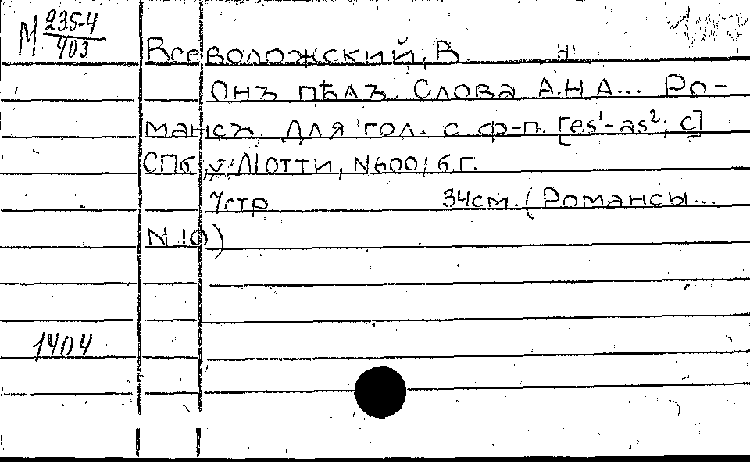 М 235-4
403
Всеволожский, В. Н
Онъ пѣлъ. Слова А.Н.А... Ро-
мансъ. Для гол. с ф-п. [es¹-as²; c]
СПб, у Лютти, N600, б.г.
7стр 34см. (Романсы...
N.10)
1404